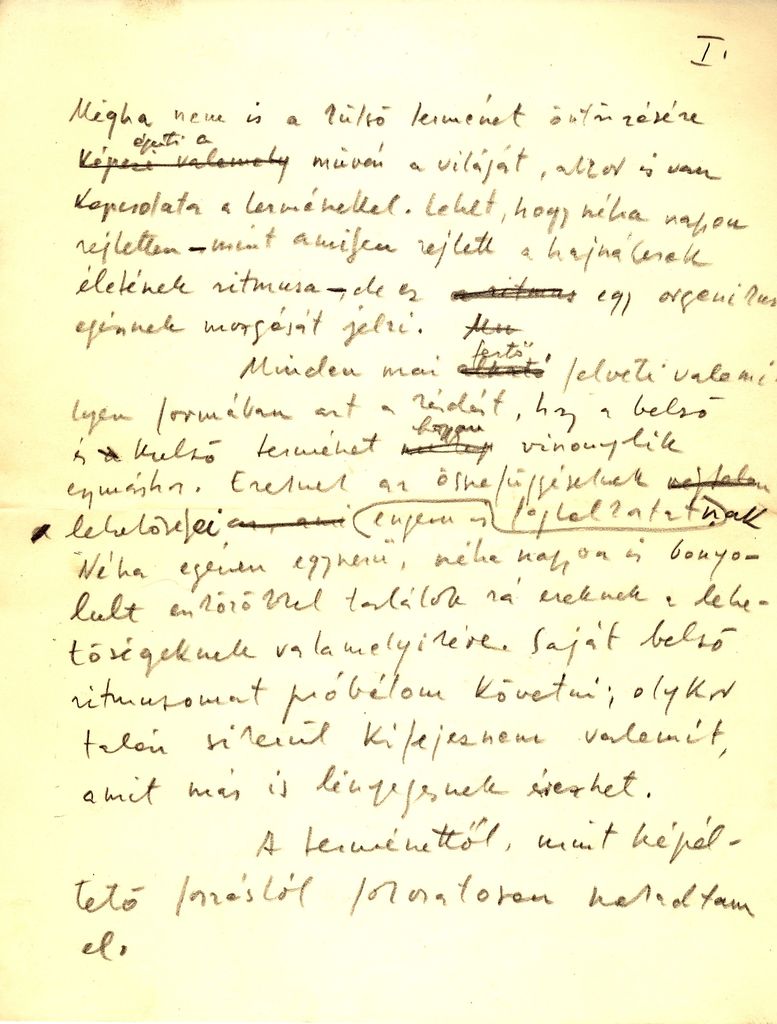 I.
Mégha nem is a külső természet öntörvésére
építi a
képeze valamely művén a világát, akkor is van
kapcsolata a természettel. Lehet, hogy néha nagyon
rejtetten – mint amilyen rejtett a hajnalcsak
életének ritmusa –, de ez a ritmus egy organikus
egésznek mozgását jelzi. Mu
festő
Minden mai alkotó felveti valami-
lyen formában azt a kérdést, hogy a belső
és a külső természet hogyan viszonylik
egymáshoz. Ezeknek az összefüggéseknek végtelen
lehetőségei az, ami engem is foglalkoztatnak
Néha egészen egyszerű, néha nagyon is bonyo-
lult eszközökkel találok rá ezeknek a lehe-
tőségeknek valamelyikére. Saját belső
ritmusomat próbálom követni; olykor
talán sikerül kifejeznem valamit,
amit más is lényegesnek érezhet.
A természettől, mintképél-
tető forrástól fokozatosan szakadtam
el.